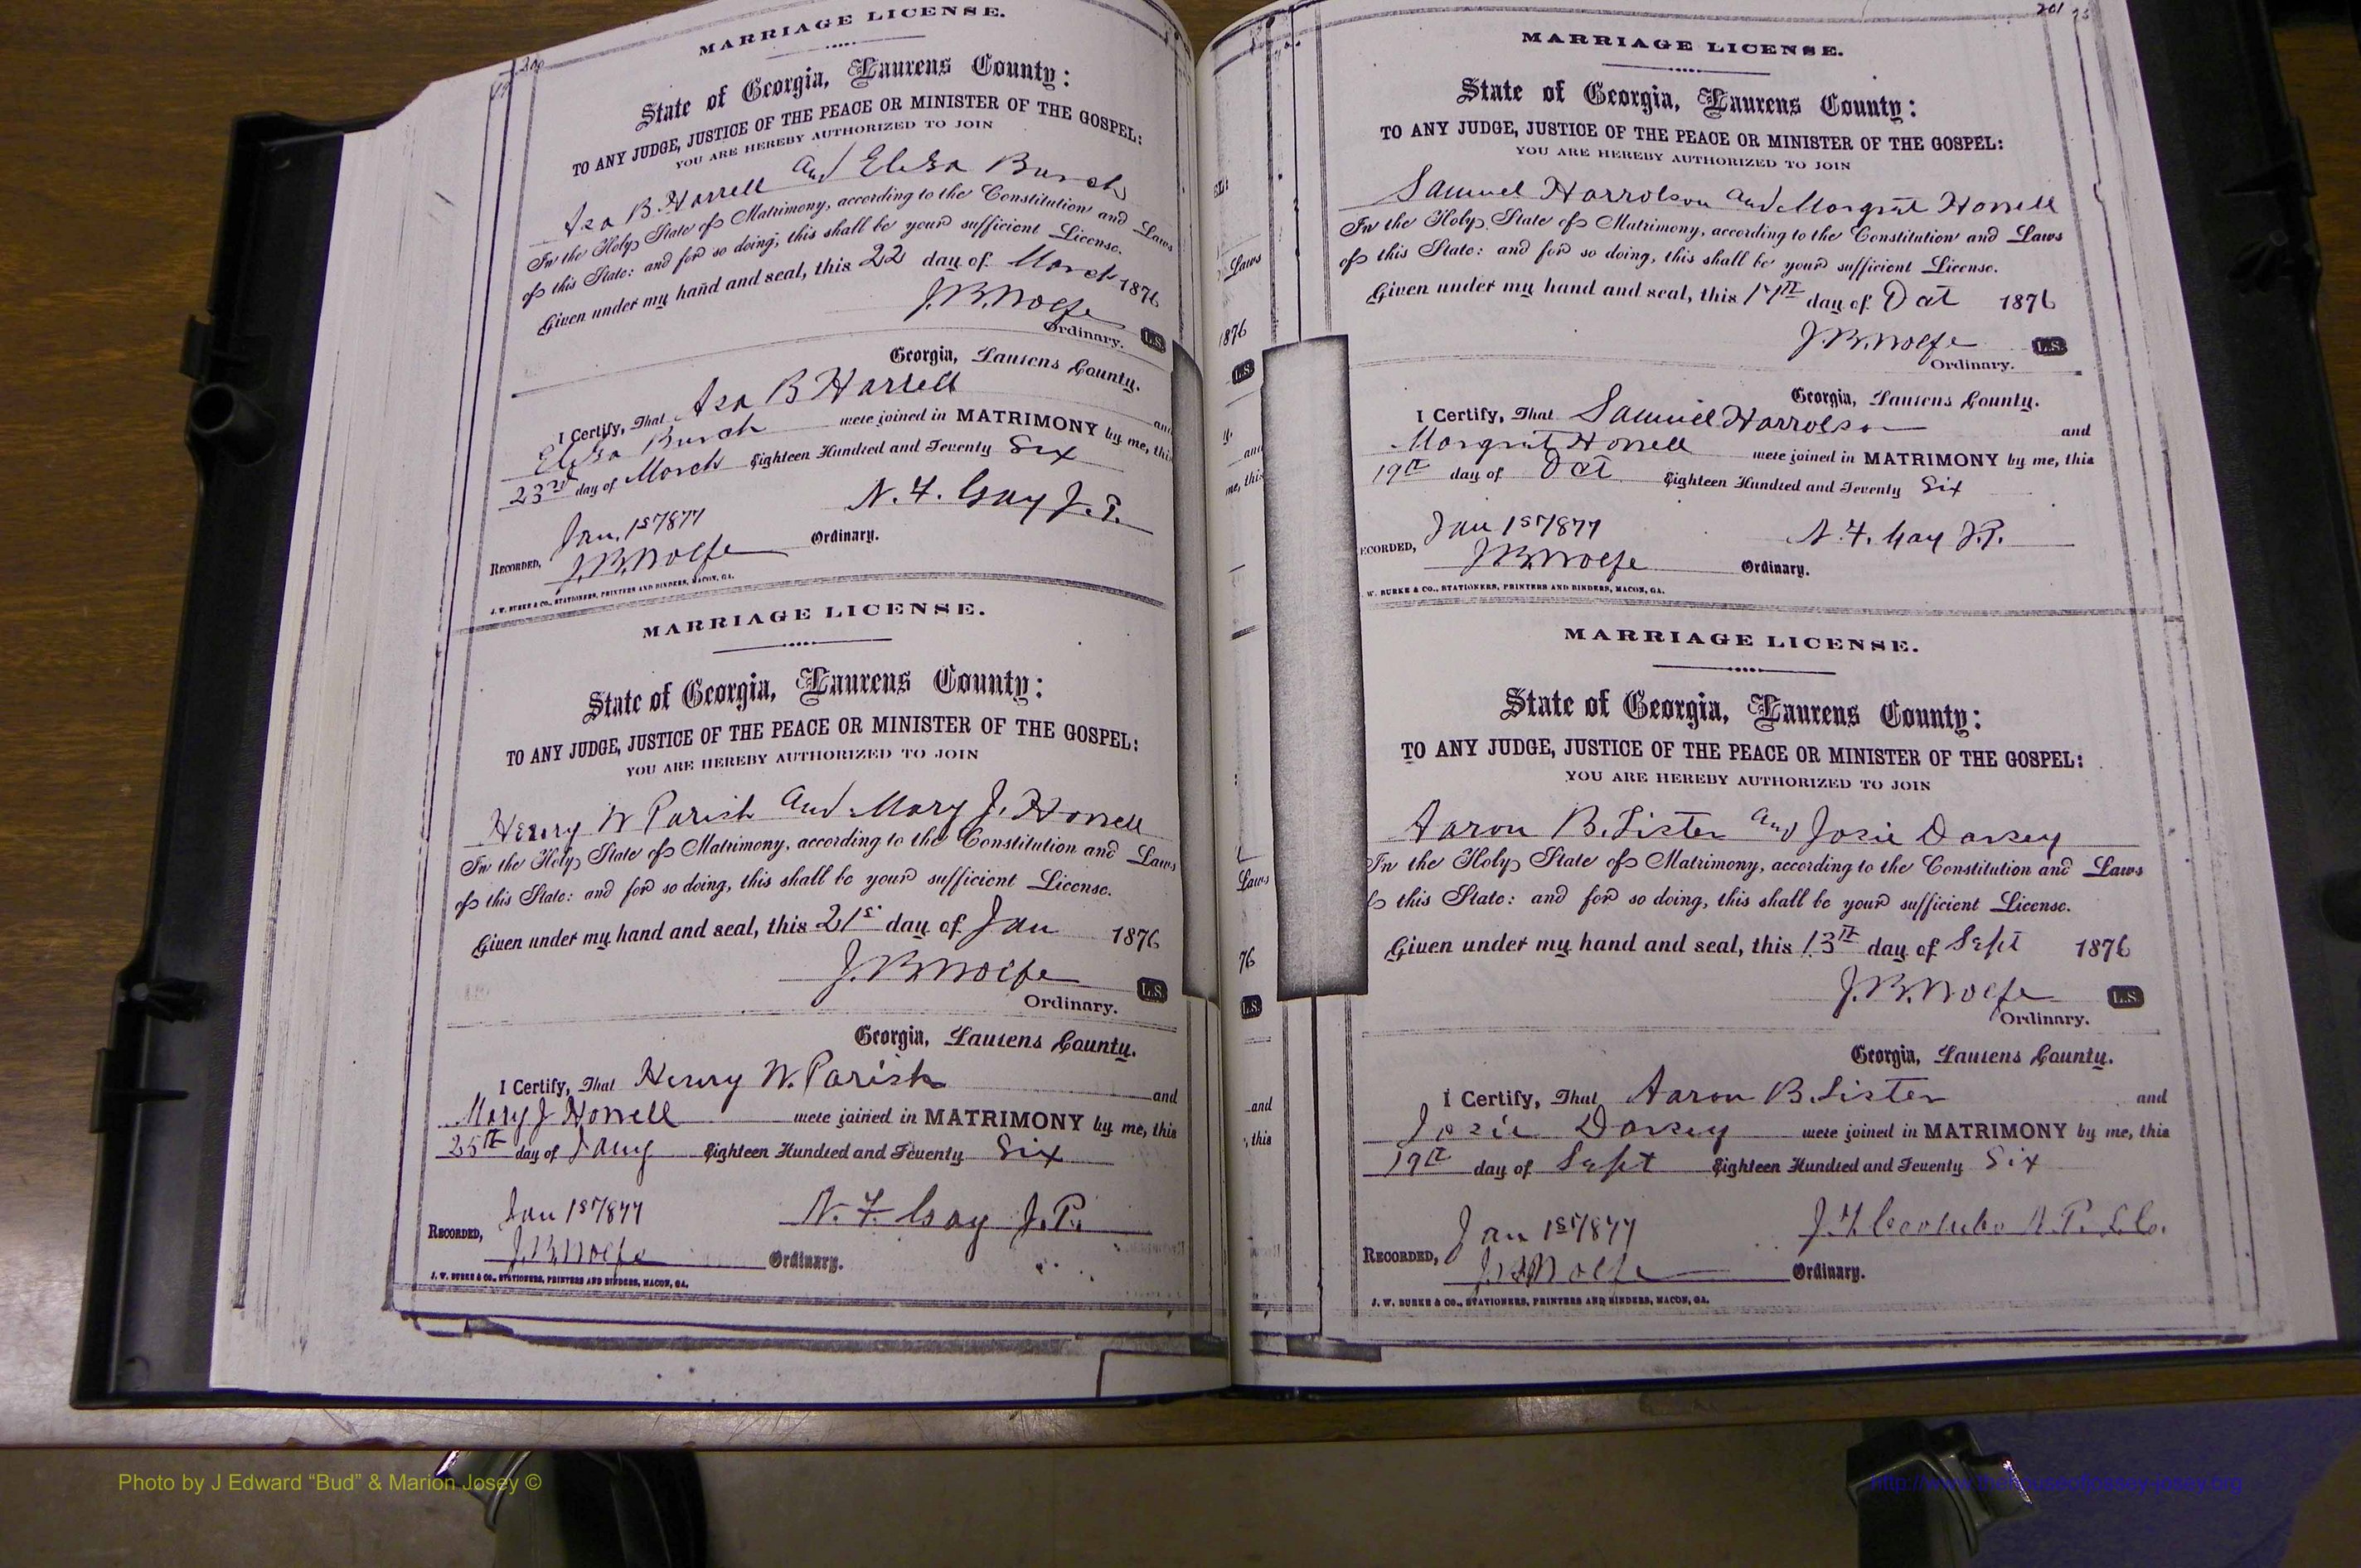 200
MARRIAGE LICENSE.
State of Georgia, Laurens County:
TO ANY JUDGE, JUSTICE OF THE PEACE OR MINISTER OF THE GOSPEL:
YOU ARE HEREBY AUTHORIZED TO JOIN
Asa B. Harrell and Eliza Burch
In the Holy State of Matrimony, according to the Constitution and Laws
of this State: and for so doing, this shall be your sufficient License.
Given under my hand and seal, this 22 day of March 1876
J.B. Wolfe
Ordinary. L.S.
Georgia, Laurens County.
I Certify, That Asa B Harrell and
Eliza Burch were joined in MATRIMONY by me, this
23rd day of March Eighteen Hundred and Seventy Six
N. F. Gay J.P.
Recorded, Jan. 1st 1877
J.B. Wolfe Ordinary.
J. W. BURKE & CO., STATIONERS, PRINTERS AND BINDERS, MACON, GA.
MARRIAGE LICENSE.
State of Georgia, Laurens County:
TO ANY JUDGE, JUSTICE OF THE PEACE OR MINISTER OF THE GOSPEL:
YOU ARE HEREBY AUTHORIZED TO JOIN
Henry W Parish and Mary J. Horrell
In the Holy State of Matrimony, according to the Constitution and Laws
of this State: and for so doing, this shall be your sufficient License.
Given under my hand and seal, this 21st day of Jan 1876
J.B. Wolfe
Ordinary. L.S.
Georgia, Laurens County.
I Certify, That Henry W. Parish and
Mary J Horrell were joined in MATRIMONY by me, this
25th day of Jany Eighteen Hundred and Seventy Six
N. F. Gay J.P.
Recorded, Jan 1st 1877
J.B. Wolfe Ordinary.
J. W. BURKE & CO., STATIONERS, PRINTERS AND BINDERS, MACON, GA.
Laws
1876
L.S.
and
me, this
Laws
76
L.S.
and
, this
201
MARRIAGE LICENSE.
State of Georgia, Laurens County:
TO ANY JUDGE, JUSTICE OF THE PEACE OR MINISTER OF THE GOSPEL:
YOU ARE HEREBY AUTHORIZED TO JOIN
Samuel Harrolson and Margrat Horrell
In the Holy State of Matrimony, according to the Constitution and Laws
of this State: and for so doing, this shall be your sufficient License.
Given under my hand and seal, this 17th day of Oct 1876
J.B. Wolfe
Ordinary. L.S.
Georgia, Laurens County.
I Certify, That Samuel Harrolson and
Margrat Horrell were joined in MATRIMONY by me, this
19th day of Oct Eighteen Hundred and Seventy Six
N. F. Gay J.P.
ECORDED, Jan 1st 1877
J.B. Wolfe Ordinary.
W. BURKE & CO., STATIONERS, PRINTERS AND BINDERS, MACON, GA.
MARRIAGE LICENSE.
State of Georgia, Laurens County:
TO ANY JUDGE, JUSTICE OF THE PEACE OR MINISTER OF THE GOSPEL:
YOU ARE HEREBY AUTHORIZED TO JOIN
Aaron B. Lister and Josie Dorsey
In the Holy State of Matrimony, according to the Constitution and Laws
this State: and for so doing, this shall be your sufficient License.
Given under my hand and seal, this 13th day of Sept 1876
J.B. Wolfe
Ordinary. L.S.
Georgia, Laurens County.
I Certify, That Aaron B. Lister and
Josie Dorsey were joined in MATRIMONY by me, this
19th day of Sept Eighteen Hundred and Seventy Six
Recorded, Jan 1st 1877
J.B. Wolfe Ordinary.
J. W. BURKE & CO., STATIONERS, PRINTERS AND BINDERS, MACON, GA.
Photo by J Edward “Bud” & Marion Josey ©
http://www.thehouseofjossey-josey.org